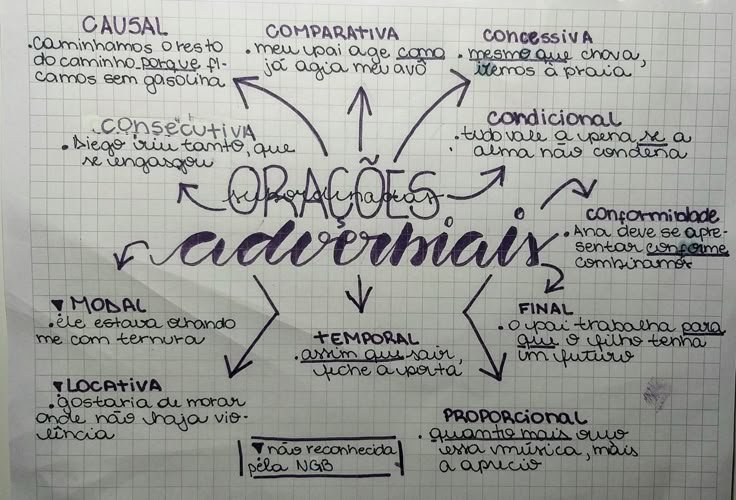 CAUSAL
.caminhamos o resto
do caminho porque fi-
camos sem gasolina
COMPARATIVA
.meu pai age como
já agia meu avô
CONCESSIVA
.mesmo que chova,
iremos à praia
CONSECUTIVA
.Diego riu tanto, que
se engasgou
CONDICIONAL
.tudo vale a pena se a
alma não condena
ORAÇÕES
subordinadas
adverbiais
CONFORMIDADE
.Ana deve se apre-
sentar conforme
combinamos
▼MODAL
.ele estava olhando
me com ternura
TEMPORAL
.assim que sair,
feche a porta
FINAL
.o pai trabalha para
que o filho tenha
um futuro
▼LOCATIVA
.gostaria de morar
onde não haja vio-
lência
PROPORCIONAL
.quanto mais ouço
essa música, mais
a aprecio
▼não reconhecida
pela NGB